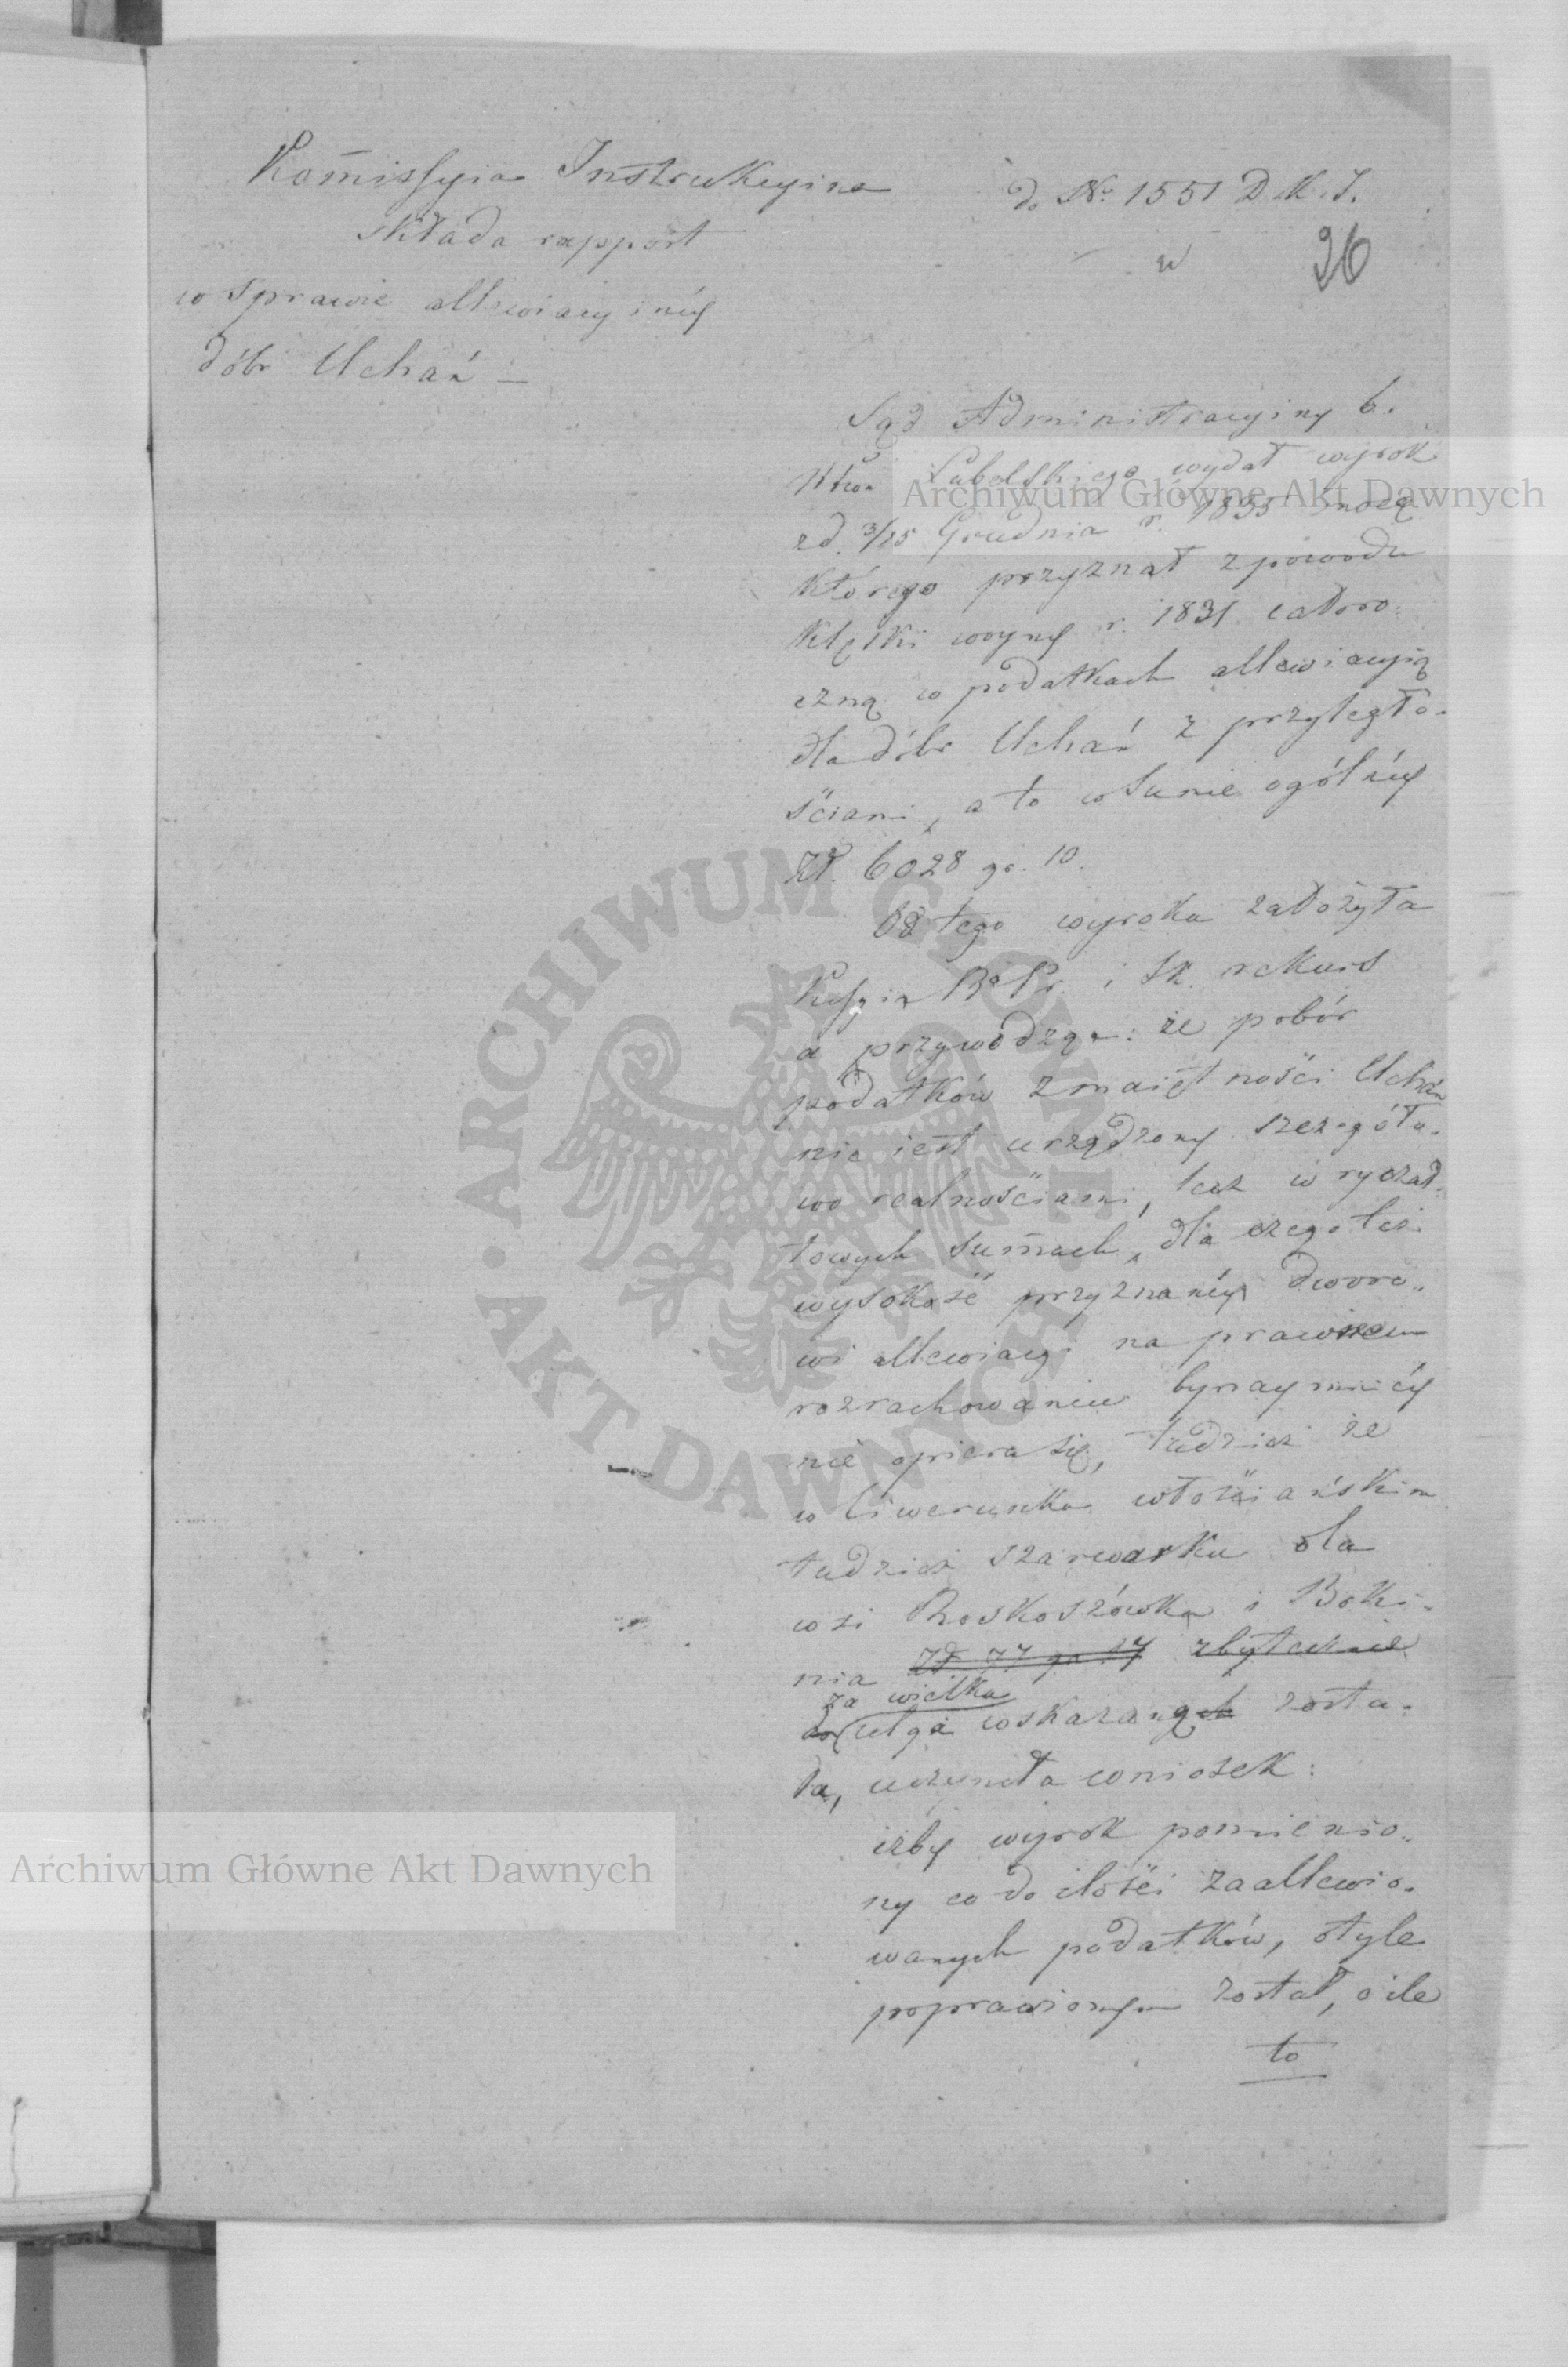 Kom̄issyia Instrukcyina
składa rapport
w sprawie allewiacyinéy
dóbr Uchań —
do No. 1551 D.K.I.
w
96
Sąd Administracyiny b.
Wtwa Lubelskiego wydał wyrok
z d. 3/15 Grudnia r. 1835 mocą
którego przyznał z powodu
klęski woyny r. 1831 całoro-
czną w podatkach allewiacyią
dla dóbr Uchań z przyległo-
ściami, a to w Sumie ogólnéy
Zł. 6028 gr. 10.
Od tego wyroku założyła
R. P. i Sk. rekurs
a przywodząc: że pobór
podatków z maiętności Uchań
nie iest urządzony szczegóło-
wo realnościami, lecz w ryczał-
towych sum̄ach, dla czego też
wysokość przyznanéy dworo-
wi allewiacyi na prawném
rozrachowaniu bynaymniéy
nie opiera się, tudzież że
w liwerunku włościańskim
tudzież szarwarku dla
wsi Roskoszówka i Boki-
nia Zł. 77 gr. 17 zbytecznie
za wielka
ulga wskazaną zosta-
ła, uczyniła wniosek:
iżby wyrok pomienio-
ny co do ilości zaallewio-
wanych podatków, o tyle
poprawionym został, o ile
to
Archiwum Główne Akt Dawnych
ARCHIWUM GŁÓWNE • AKT DAWNYCH •
Archiwum Główne Akt Dawnych